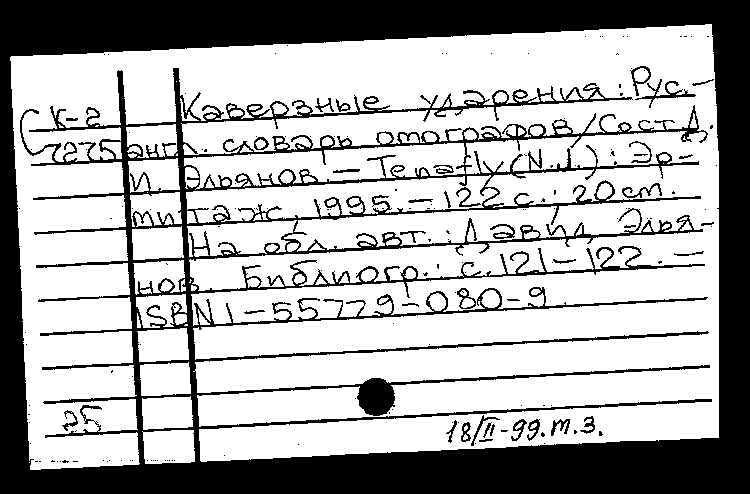 К-2 Каверзные ударения: Рус.-
7275 англ. словарь омографов/Сост. Д.
И. Эльянов.-Tenafly(N.J.): Эр-
митаж, 1995.-122 с.; 20 cm.
На обл. авт.: Давид Элья-
нов. Библиогр.: с. 121-122.-
ISBN 1-55779-080-9
25
18/II-99.т.з.